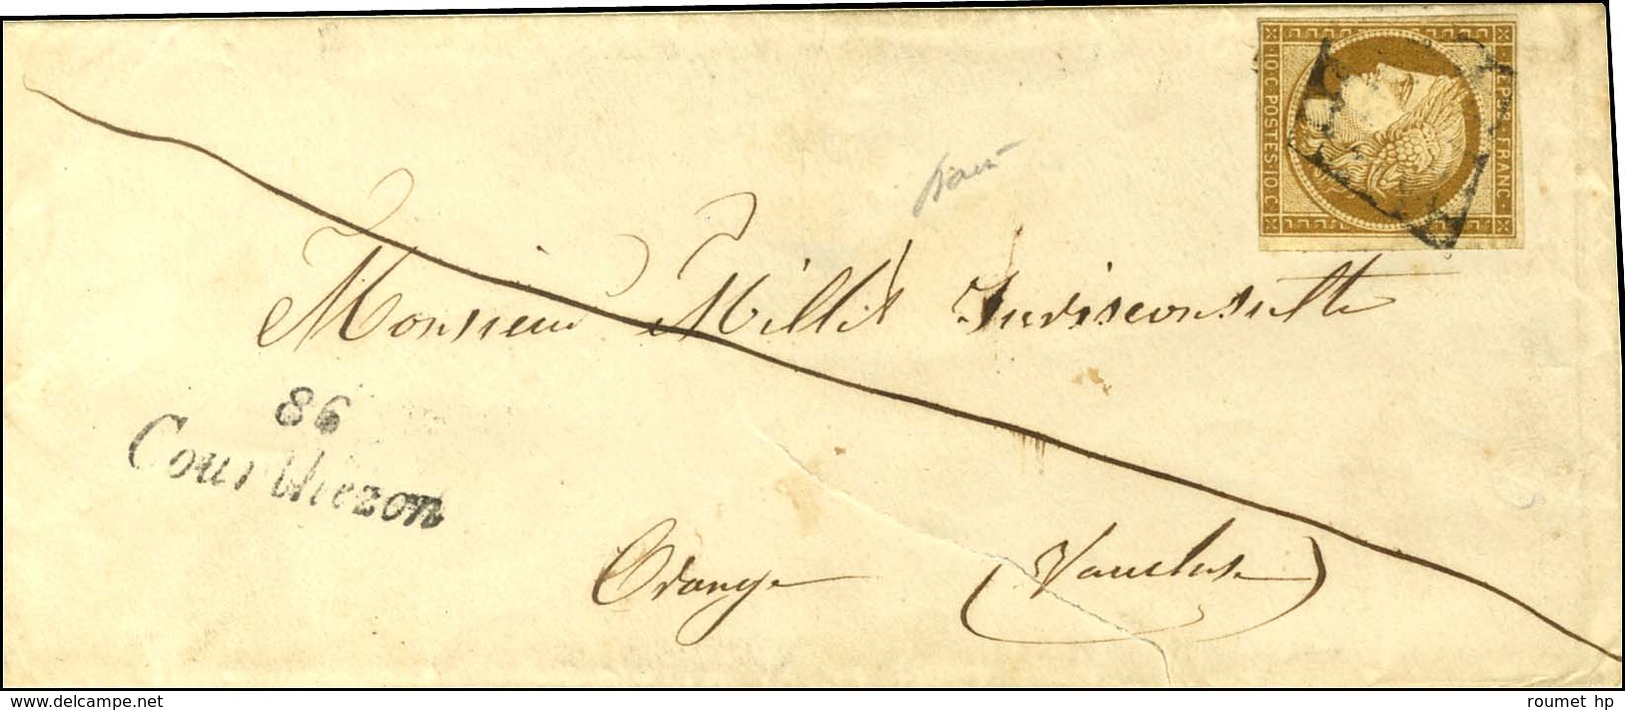 REPUB. FRANC.
10.C. POSTES. 10.C.
Monsieur Millet Jurisconsulte
86
Courthezon
Orange (Vaucluse)
roumet hp